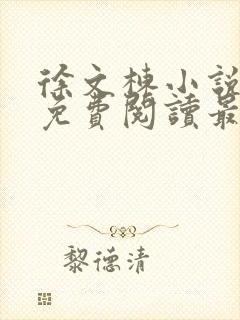 徐文棟小說
免費閱讀最
黎德清